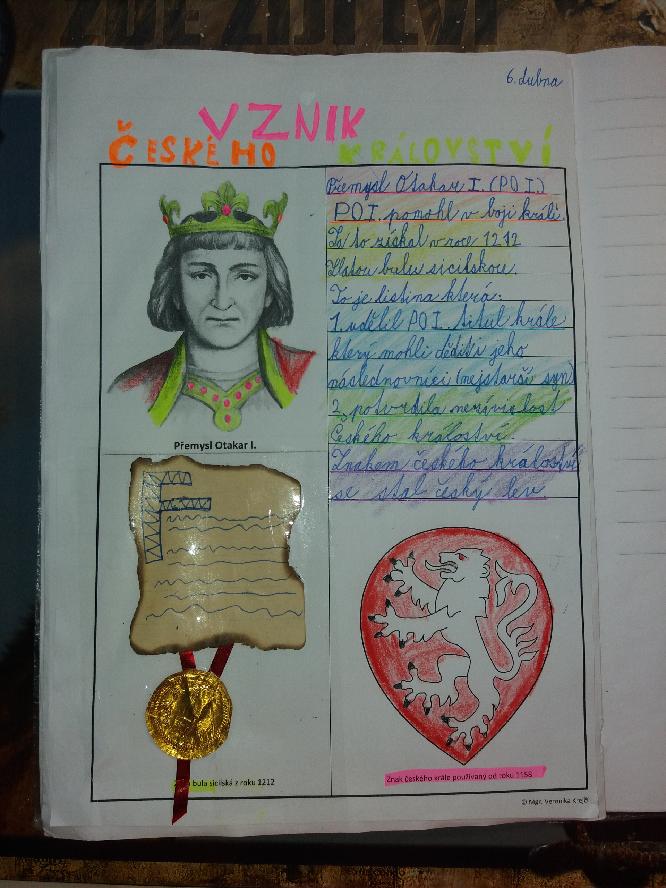 ZDE ŽIJÍ LVI
6. dubna
VZNIK
ČESKÉHO KRÁLOVSTVÍ
Přemysl Otakar I. (PO I.)
PO I. pomohl v boji králi.
Za to získal v roce 1212
Zlatou bulu sicilskou.
To je listina která:
1. udělil PO I. titul krále
který mohli děditi jeho
následnovníci (nejstarší syn)
2. potvrdila nezávislost
Českého králoství.
Znakem českého králoství
se stal český lev
Přemysl Otakar I.
bula sicilská z roku 1212
Znak českého krále používaný od roku 1158
© Mgr. Veronika Krejčí